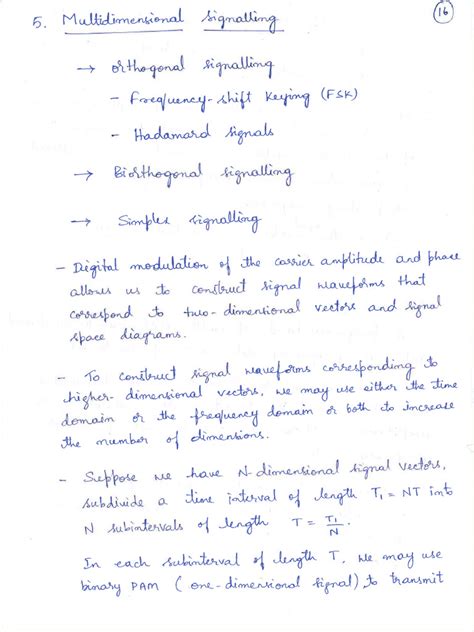 5. Multidimensional signalling
16
→ orthogonal signalling
- Frequency-shift Keying (FSK)
- Hadamard signals
→ Biorthogonal signalling
→ Simplex signalling
- Digital modulation of the carrier amplitude and phase
allows us to construct signal waveforms that
correspond to two-dimensional vectors and signal
space diagrams.
- To construct signal waveforms corresponding to
higher-dimensional vectors, we may use either the time
domain or the frequency domain or both to increase
the number of dimensions.
- Suppose we have N-dimensional signal vectors,
subdivide a time interval of length T₁ = NT into
N subintervals of length T = T₁/N.
In each subinterval of length T, we may use
binary PAM (one-dimensional signal) to transmit